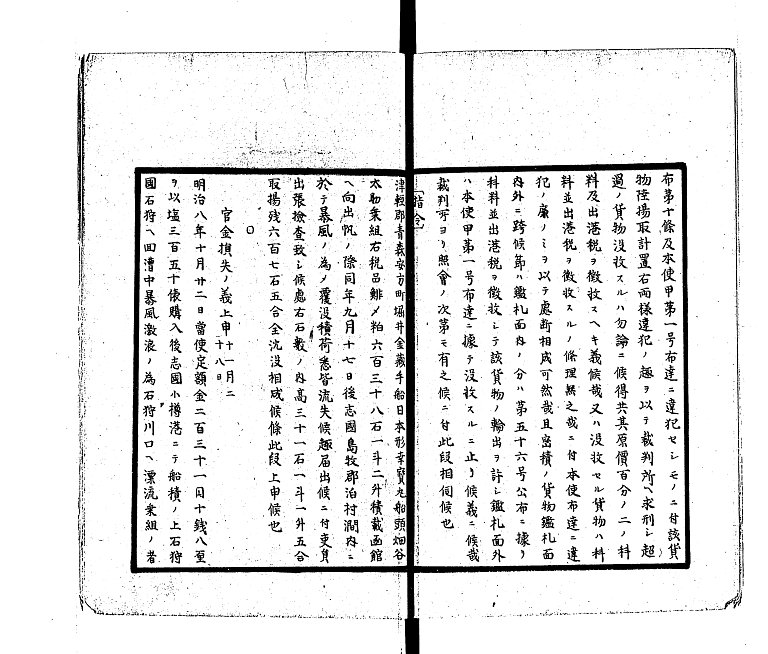 布第十條及本使甲第一号布達ニ違犯セシモノニ付該貨
物陸揚取計置右両様違犯ノ趣ヲ以テ裁判所ヘ求刑シ超
過ノ貨物没收スルハ勿論ニ候得共其原價百分ノ二ノ科
料及出港税ヲ徴收スヘキ義候哉又ハ没收セル貨物ハ科
料並出港税ヲ徴收スルノ條理無之哉ニ付本使布達ニ違
犯ノ廉ノミヲ以テ處断相成可然哉且密積ノ貨物鑑札面
内外ニ跨候節ハ鑑札面内ノ分ハ第五十六号公布ニ據リ
科料並出港税ヲ徴收シテ該貨物ノ輸出ヲ許シ鑑札面外
ハ本使甲第一号布達ニ據テ没收スルニ止リ候義ニ候哉
裁判所ヨリ照會ノ次第モ有之候ニ付此段相伺候也
「指令」
津輕郡青森安方町堀井金蔵手船日本形幸寳丸船頭畑谷
太助乗組右税品鯡〆粕六百三十八石一斗二升積載函館
ヘ向出帆ノ際同年九月十七日後志國島牧郡泊村澗内ニ
於テ暴風ノ為メ覆没積荷悉皆流失候趣届出候ニ付吏員
出張檢査致シ候處右石数ノ内高三十一石一斗一升五合
取揚残六百七石五合全沈没相成候條此段上申候也
○
官金損失ノ義上申十一月二十八日
明治八年十月廿二日當使定額金二百三十一円十銭八至
ヲ以塩三百五十俵購入後志國小樽港ニテ船積ノ上石狩
國石狩ヘ回漕中暴風激浪ノ為石狩川口ヘ漂流乗組ノ者